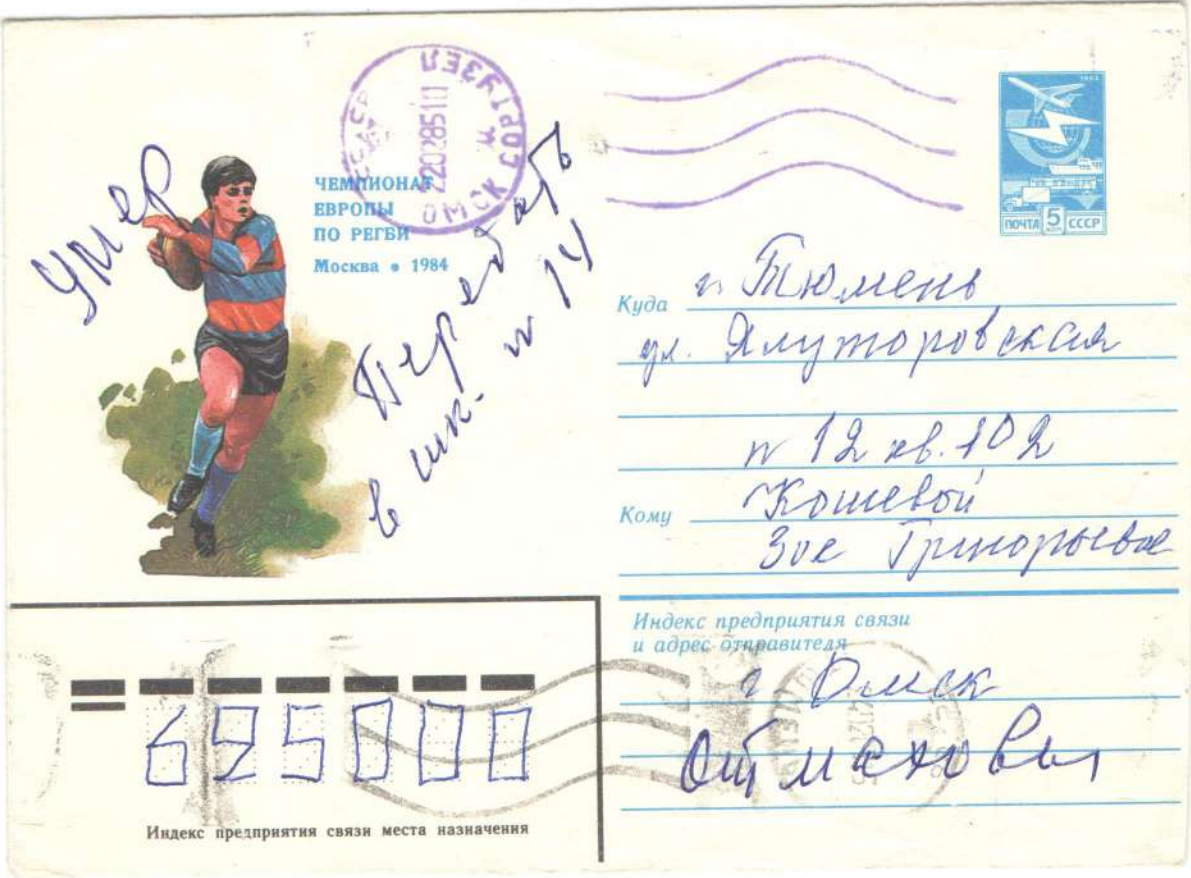 ОМСК
22028510
ЧЕМПИОНАТ
ЕВРОПЫ
ПО РЕГБИ
Москва • 1984
Умер
Передать
в шк. № 14
ПОЧТА 5 СССР
Куда г. Тюмень
ул. Ялуторовская
№ 12 кв. 102
Кому Кошевой
Зое Григорьевне
Индекс предприятия связи
и адрес отправителя
г Омск
625000
Индекс предприятия связи места назначения